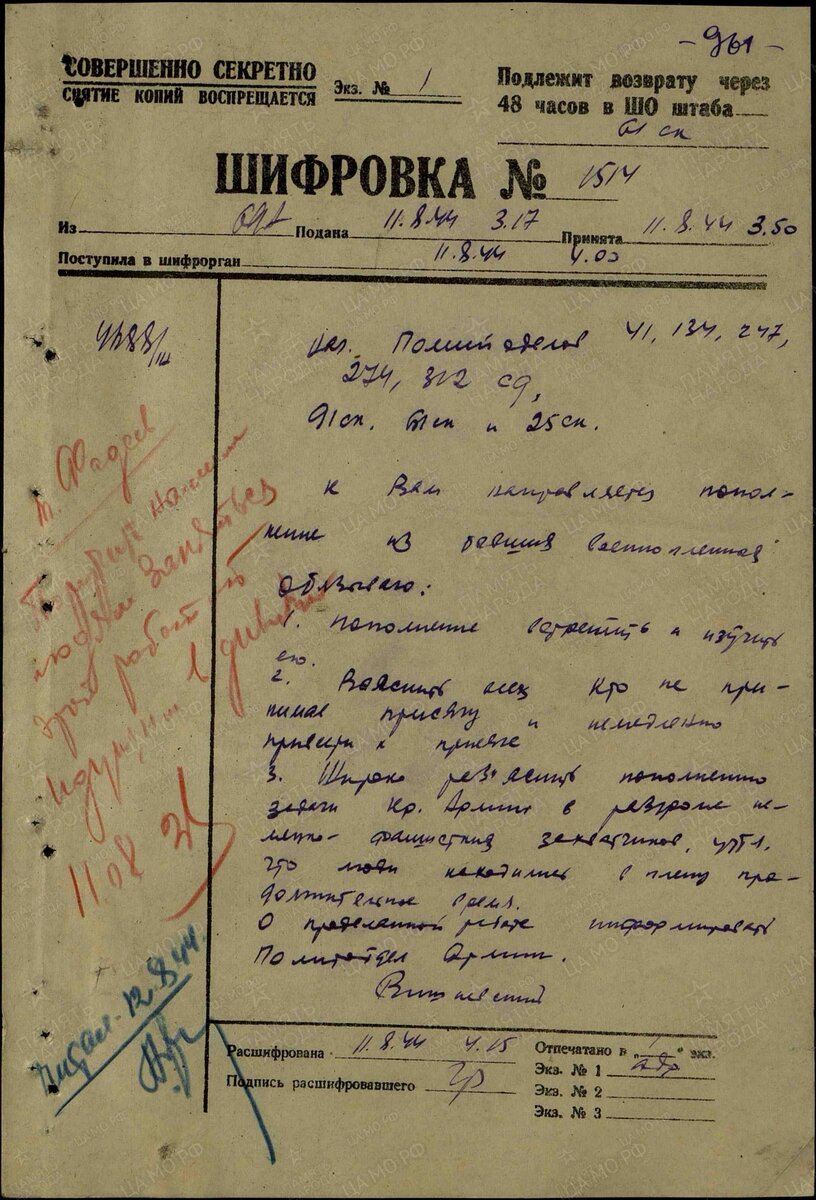 -961-
СОВЕРШЕННО СЕКРЕТНО
СНЯТИЕ КОПИЙ ВОСПРЕЩАЕТСЯ
Экз. № 1
Подлежит возврату через
48 часов в ШО штаба
61 ск
ШИФРОВКА № 1514
Из Подана 11.8.44 3.17 Принята 11.8.44 3.50
Поступила в шифрорган 11.8.44 4.00
Нач. Политотделов 41, 134, 247,
274, 312 сд,
91ск, 61ск и 25ск.
К Вам направляется попол-
нение из бывших военнопленных
обязываю:
1. Пополнение встретить и изучить
его.
2. Выяснить всех кто не при-
нимал присягу и немедленно
привести к присяге
3. Широко раз'яснить пополнению
задачи Кр. Армии в разгроме не-
мецко-фашистских захватчиков, учтя,
что люди находились в плену про-
должительное время.
О проделанной работе информировать
Политотдел Армии.
Вишневский
т. Фадеев
Поручить нашим
людям заняться
этой работой
идущими в дивизии
11.08
Читал. 12.8.44.
Расшифрована 11.8.44 4.15
Подпись расшифровавшего
Отпечатано в „1" экз.
Экз. № 1
Экз. № 2
Экз. № 3